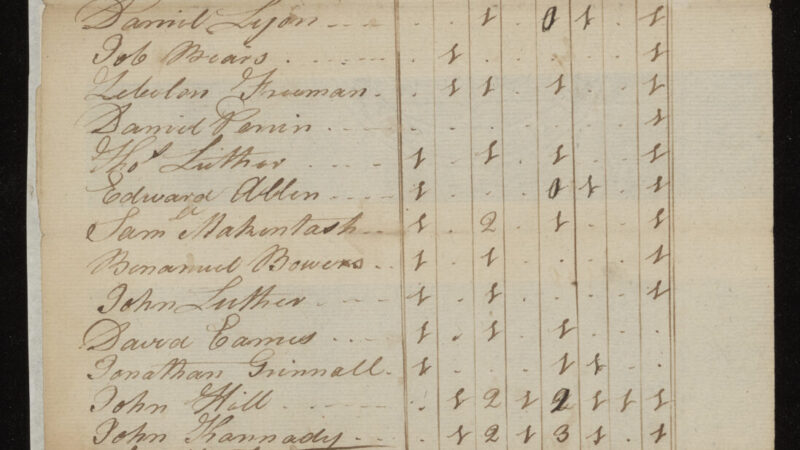 Daniel Lyon . . 1 . 0 1 . 1
Job Bears . 1 . . . . . 1
Zebulon Freeman . 1 1 . 1 . . 1
Daniel Perrin . . . . . . . 1
Thos Luther 1 . 1 . 1 . . 1
Edward Allen 1 . . . 0 1 . 1
Saml Makentash 1 . 2 . 1 . . 1
Benanuel Bowers 1 . 1 . . . . 1
John Luther 1 . 1 . . . . 1
David Eames 1 . 1 . 1 . . .
Jonathan Grinnall 1 . . . 1 1 . .
John Hill . 1 2 1 2 1 1 1
John Kannady . 1 2 1 3 1 . 1